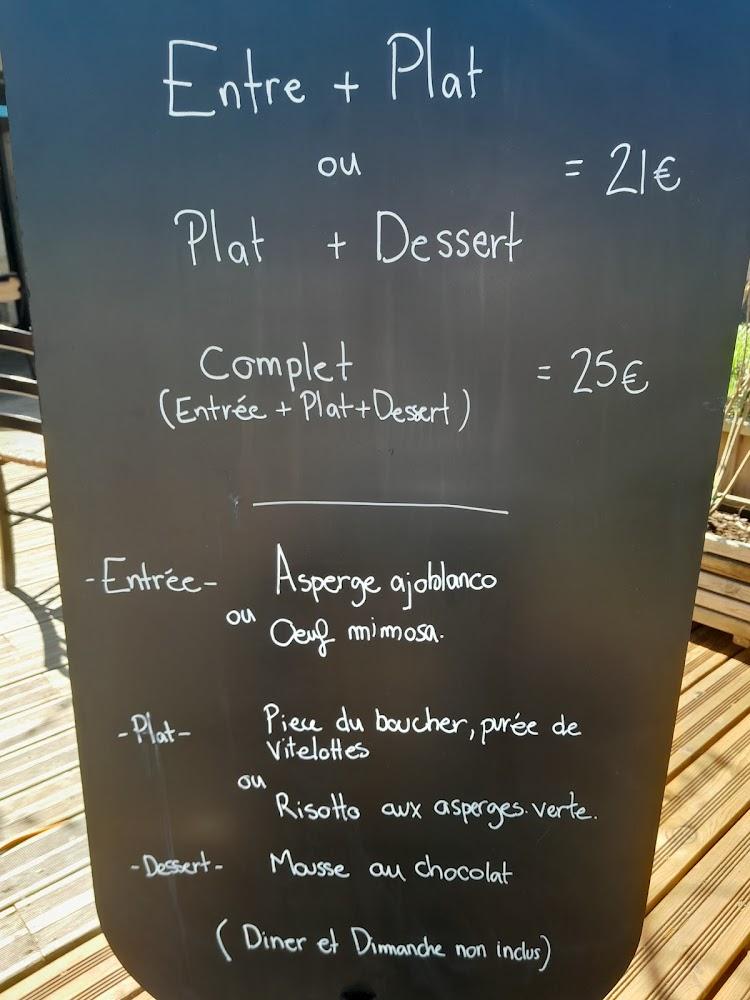 Entre + Plat
ou = 21€
Plat + Dessert
Complet = 25€
(Entrée + Plat+Dessert)
-Entrée- Asperge ajoblanco
ou Oeuf mimosa.
-Plat- Piece du boucher, purée de
vitelottes
ou
Risotto aux asperges verte.
-Dessert- Mousse au chocolat
(Diner et Dimanche non inclus)